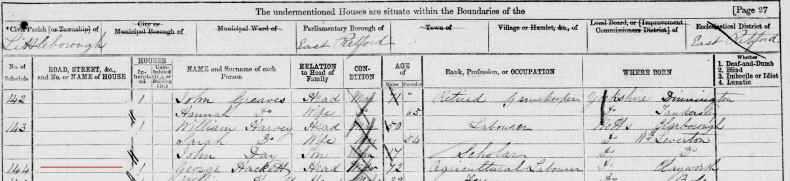 The undermentioned Houses are situate within the Boundaries of the
[Page 27
Civil Parish [or Township] of
Littleborough
City or
Municipal Borough of
Municipal Ward of
Parliamentary Borough of
East Retford
Town of
Village or Hamlet, &c., of
Local Board, or [Improvement
Commissioners District] of
Ecclesiastical District of
East Retford
No. of
Schedule
ROAD, STREET, &c.,
and No. or NAME of HOUSE
HOUSES
NAME and Surname of each
Person
RELATION
to Head of
Family
CON-
DITION
AGE
of
Males
Females
Rank, Profession, or OCCUPATION
WHERE BORN
Whether
1. Deaf-and-Dumb
2. Blind
3. Imbecile or Idiot
4. Lunatic
142 1 John Greaves Head Retired Gamekeeper Yorkshire Dinnington
Hannah Do Wife 65 Do
143 1 William Harvey Head 50 Labourer Notts
Sarah Do Wife 54 Do Leverton
John Day Son 17 Scholar Do Do
144 1 George Hackett Head 72 Agricultural Labourer Do Hayworth